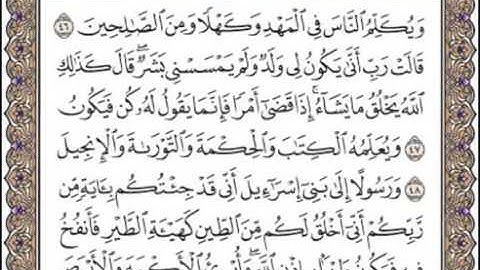 وَيُكَلِّمُ النَّاسَ فِي الْمَهْدِ وَكَهْلًا وَمِنَ الصَّالِحِينَ ٤٦
قَالَتْ رَبِّ أَنَّىٰ يَكُونُ لِي وَلَدٌ وَلَمْ يَمْسَسْنِي بَشَرٌ ۖ قَالَ كَذَٰلِكِ
اللَّهُ يَخْلُقُ مَا يَشَاءُ ۚ إِذَا قَضَىٰ أَمْرًا فَإِنَّمَا يَقُولُ لَهُ كُن فَيَكُونُ
٤٧ وَيُعَلِّمُهُ الْكِتَابَ وَالْحِكْمَةَ وَالتَّوْرَاةَ وَالْإِنجِيلَ
٤٨ وَرَسُولًا إِلَىٰ بَنِي إِسْرَائِيلَ أَنِّي قَدْ جِئْتُكُم بِآيَةٍ مِّن
رَّبِّكُمْ أَنِّي أَخْلُقُ لَكُم مِّنَ الطِّينِ كَهَيْئَةِ الطَّيْرِ فَأَنفُخُ